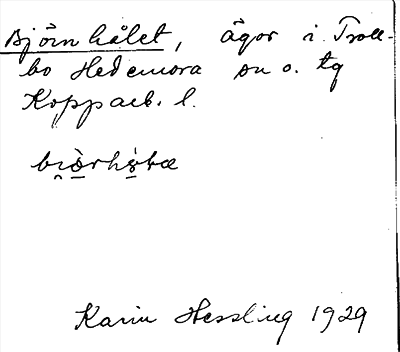 Björnhålet, ägor i Troll-
bo Hedemora sn o. tg
Kopparb. l.
Karin Hessling 1929